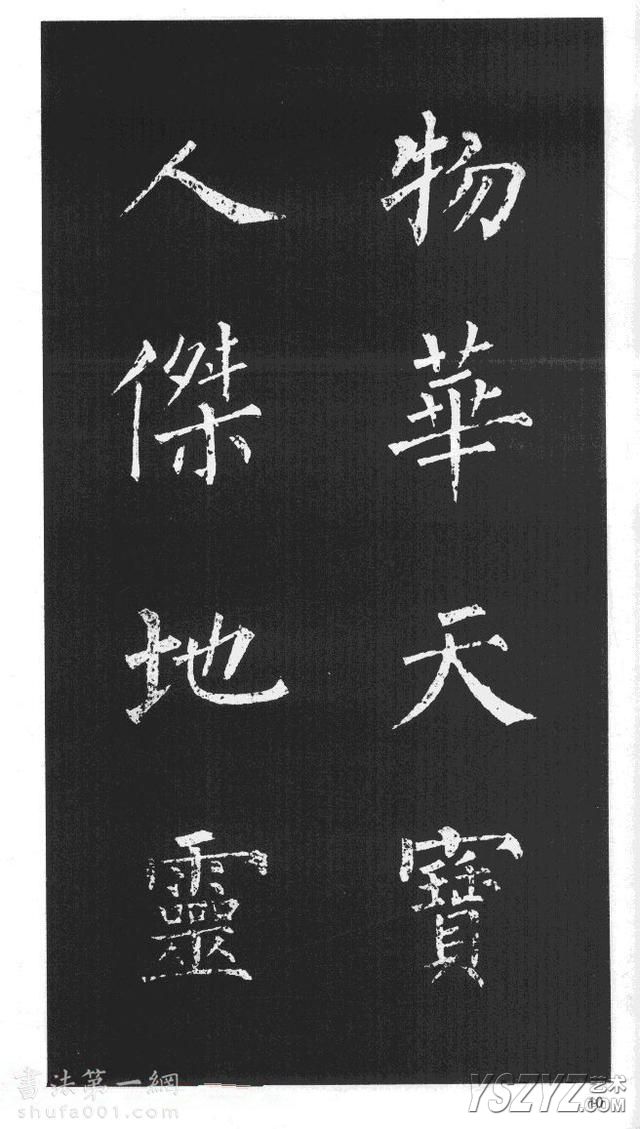 物華天寶
人傑地靈
書法第一網
shufa001.com
YSZYZ艺术
.COM
10